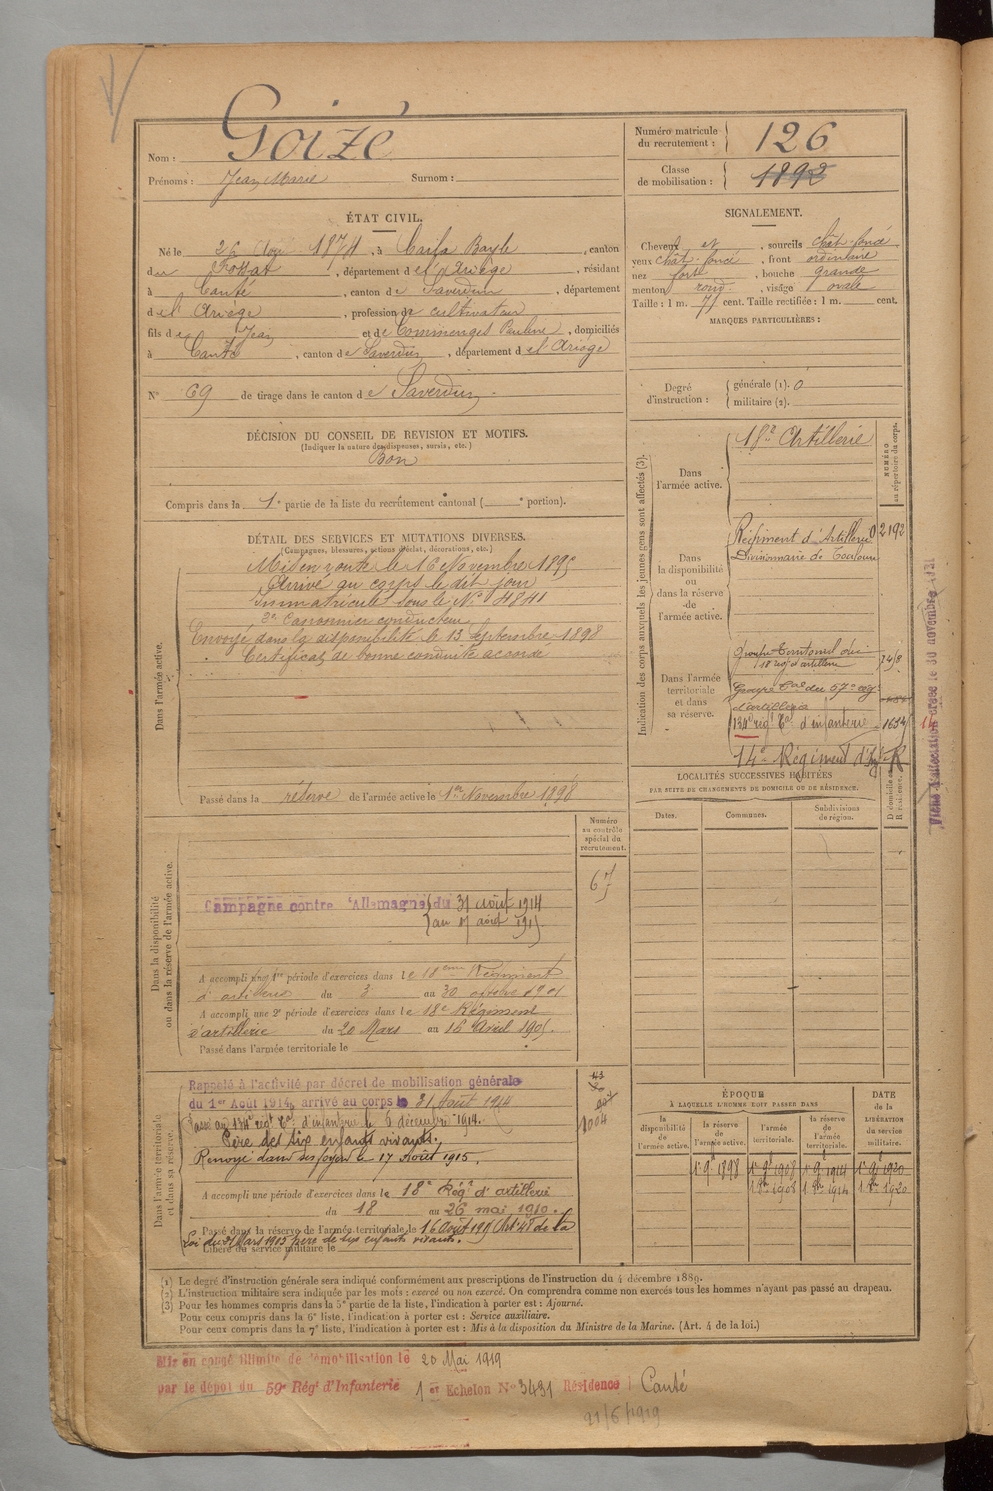 Goizé
Nom :
Prénoms : Jean Marie Surnom :
Numéro matricule du recrutement : 126
Classe de mobilisation : 1892
ÉTAT CIVIL.
Né le 26 1874, à Carla Bayle, canton
du Fossat, département de l'Ariège, résidant
à Canté, canton de Saverdun, département
de l'Ariège, profession de cultivateur
fils de Jean et de Commenges Pauline, domiciliés
à Canté, canton de Saverdun, département de l'Ariège
N° 69 de tirage dans le canton de Saverdun
SIGNALEMENT.
Cheveux et , sourcils chât. foncé
yeux chât. foncé, front ordinaire
nez fort, bouche grande
menton rond, visage ovale
Taille : 1 m. 71 cent. Taille rectifiée : 1 m. cent.
MARQUES PARTICULIÈRES :
Degré d'instruction : générale (1). 0
militaire (2).
DÉCISION DU CONSEIL DE REVISION ET MOTIFS.
(Indiquer la nature des dispenses, sursis, etc.)
Bon
Compris dans la 1e partie de la liste du recrutement cantonal ( e portion).
DÉTAIL DES SERVICES ET MUTATIONS DIVERSES.
(Campagnes, blessures, actions d'éclat, décorations, etc.)
Dans l'armée active.
Mis en route le 16 Novembre 1895
Arrivé au corps le dit jour
Immatriculé sous le N° 4841
2e Canonnier conducteur
Envoyé dans la disponibilité le 13 Septembre 1898
Certificat de bonne conduite accordé
Passé dans la réserve de l'armée active le 1er Novembre 1898
Indication des corps auxquels les jeunes gens sont affectés (3).
NUMÉRO au répertoire du corps.
Dans l'armée active.
18e Artillerie
Dans la disponibilité ou dans la réserve de l'armée active.
Régiment d'Artillerie 02192
Divisionnaire de Toulouse
Dans l'armée territoriale et dans sa réserve.
Groupe Territorial du
18 rég d'artillerie
Groupe Tal du 57e rég
d'artillerie
134e rég Tal d'infanterie
14e Régiment d'
LOCALITÉS SUCCESSIVES HABITÉES
PAR SUITE DE CHANGEMENTS DE DOMICILE OU DE RÉSIDENCE.
Dates. Communes. Subdivisions de région. D domicile ou R résidence.
Dans la disponibilité ou dans la réserve de l'armée active.
Numéro au contrôle spécial du recrutement.
67
Campagne contre l'Allemagne du 31 août 1914
au 17 août 1915.
A accompli une 1re période d'exercices dans le 18ème Régiment
d'artillerie du 3 au 30 octobre 1901
A accompli une 2e période d'exercices dans le 18e Régiment
d'artillerie du 20 Mars au 16 Avril 1905.
Passé dans l'armée territoriale le
Dans l'armée territoriale et dans sa réserve.
Rappelé à l'activité par décret de mobilisation générale
du 1er Août 1914, arrivé au corps le 31 Août 1914
Passé au 134e régt Tal d'infanterie le 6 décembre 1914.
Père de six enfants vivants.
Renvoyé dans ses foyers le 17 Août 1915.
1004
A accompli une période d'exercices dans le 18e Régt d'artillerie
du 18 au 26 mai 1910.
Passé dans la réserve de l'armée territoriale le 16 Août 1915 (Art. 48 de la
Loi du 21 Mars 1905) père de six enfants vivants.
Libéré du service militaire le
ÉPOQUE
À LAQUELLE L'HOMME DOIT PASSER DANS
DATE de la LIBÉRATION du service militaire.
la disponibilité de l'armée active. la réserve de l'armée active. l'armée territoriale. la réserve de l'armée territoriale.
1er 9bre 1898 1er 9bre 1908 1er 9bre 1914 1er 9bre 1920
1er 8bre 1908 1er 8bre 1914 1er 8bre 1920
(1) Le degré d'instruction générale sera indiqué conformément aux prescriptions de l'instruction du 4 décembre 1889.
(2) L'instruction militaire sera indiquée par les mots : exercé ou non exercé. On comprendra comme non exercés tous les hommes n'ayant pas passé au drapeau.
(3) Pour les hommes compris dans la 5e partie de la liste, l'indication à porter est : Ajourné.
Pour ceux compris dans la 6e liste, l'indication à porter est : Service auxiliaire.
Pour ceux compris dans la 7e liste, l'indication à porter est : Mis à la disposition du Ministre de la Marine. (Art. 4 de la loi.)
Mis en congé illimité de démobilisation le 20 Mai 1919
par le dépôt du 59e Régt d'Infanterie 1er Echelon N° 3431 Résidence Canté
21/6/1919